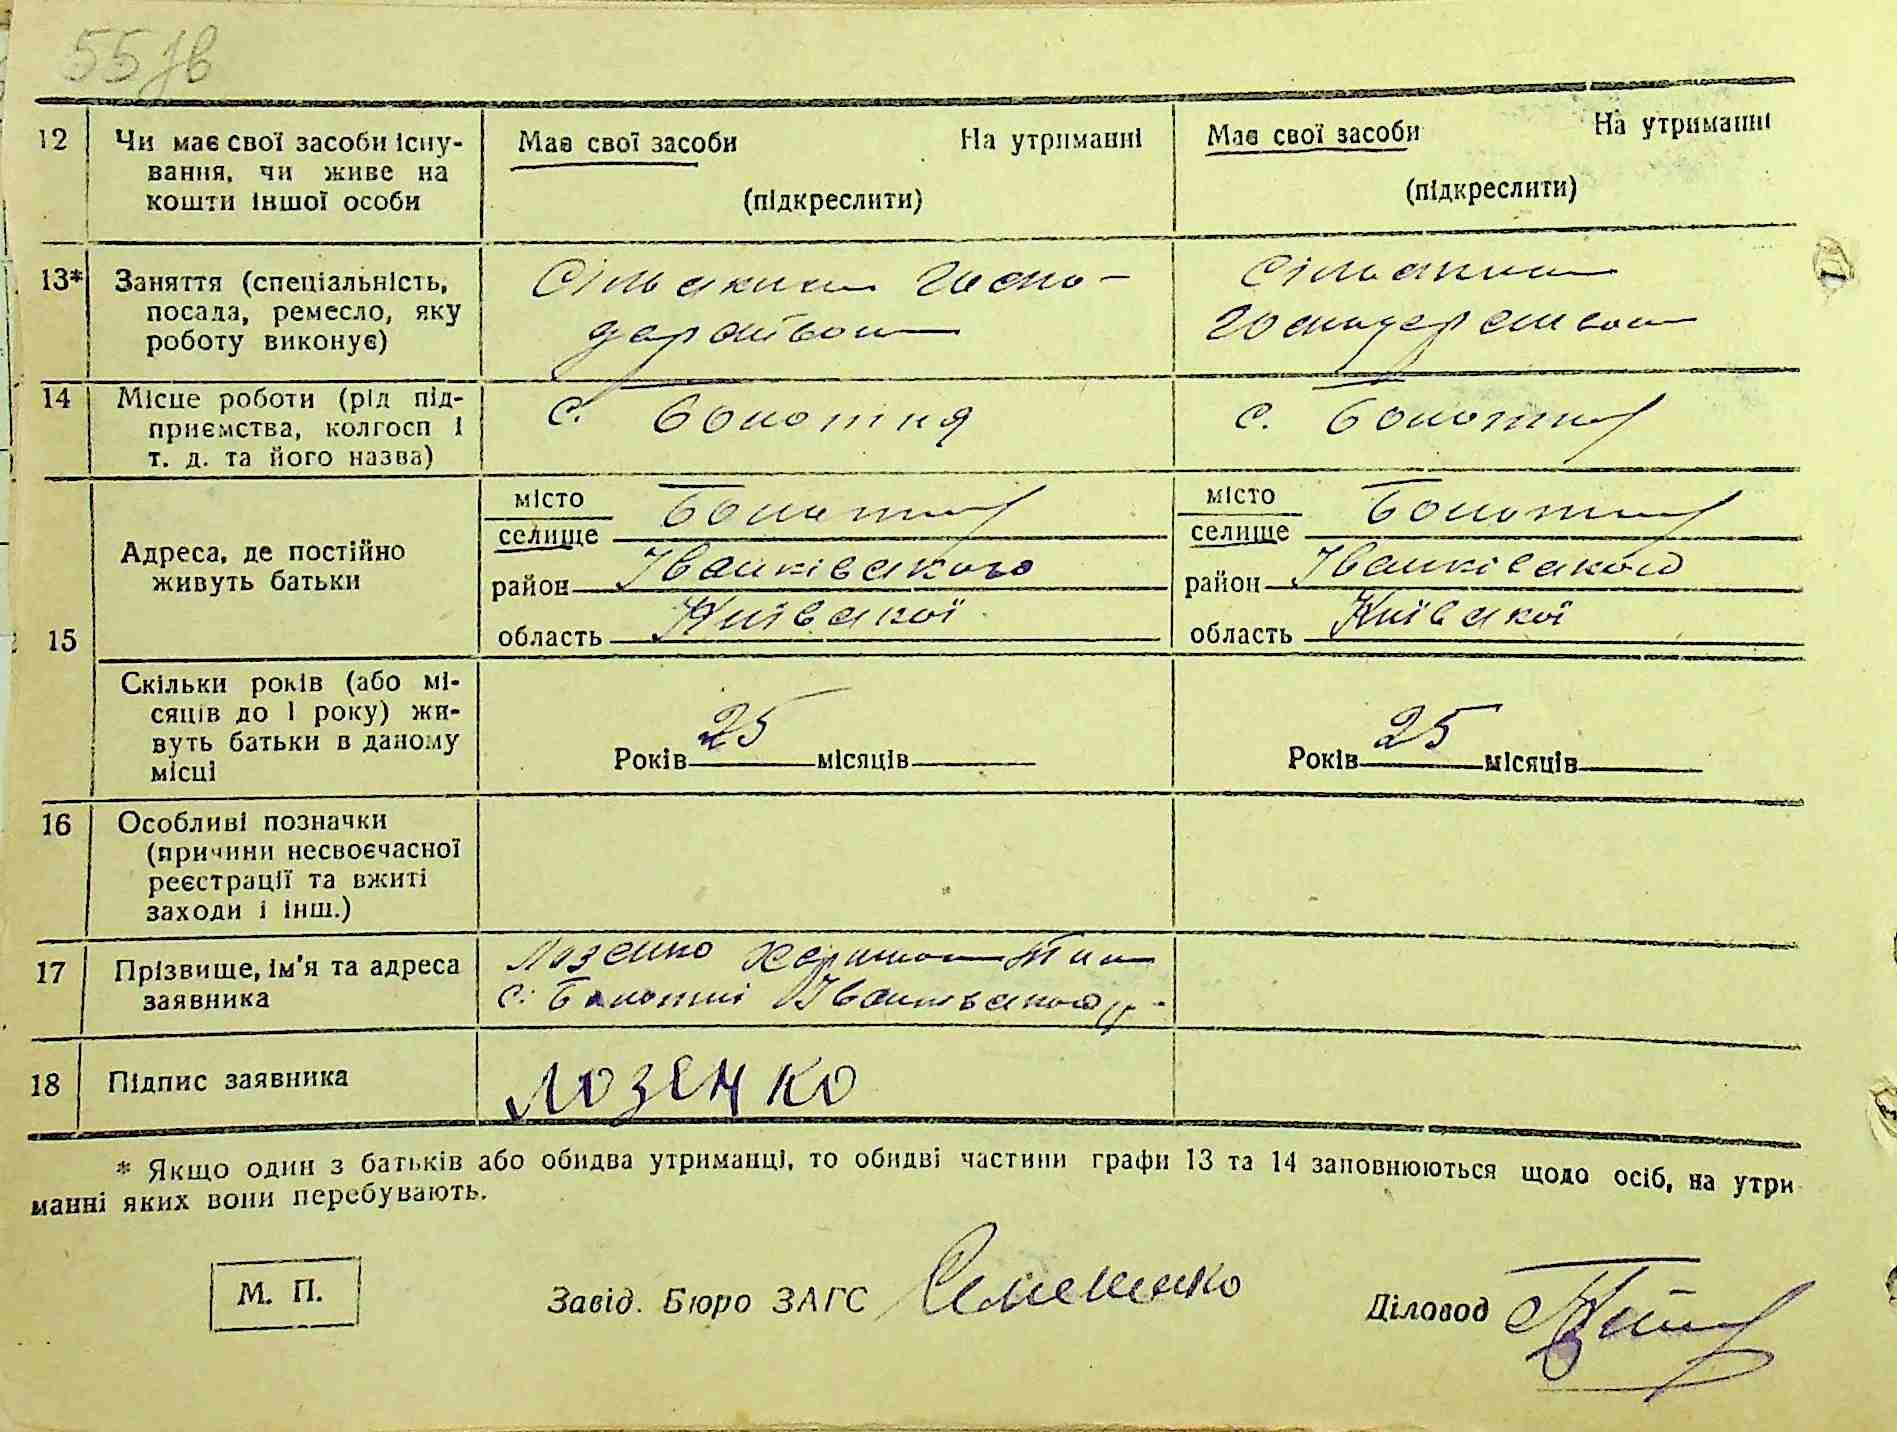 55 зв
12 Чи має свої засоби існу- Має свої засоби На утриманні Має свої засоби На утриманні
вання, чи живе на
кошти іншої особи (підкреслити) (підкреслити)
13* Заняття (спеціальність, Сільським госпо- Сільським
посада, ремесло, яку дарством господарством
роботу виконує)
14 Місце роботи (рід під- с. Болотня с. Болотня
приємства, колгосп і
т. д. та його назва)
15 Адреса, де постійно
живуть батьки
місто Болотня місто Болотня
селище селище
район Іванківського район Іванківського
область Київської область Київської
Скільки років (або мі-
сяців до 1 року) жи-
вуть батьки в даному
місці
Років 25 місяців Років 25 місяців
16 Особливі позначки
(причини несвоєчасної
реєстрації та вжиті
заходи і інш.)
17 Прізвище, ім'я та адреса Лозенко
заявника с. Болотні Іванківського р.
18 Підпис заявника Лозенко
* Якщо один з батьків або обидва утриманці, то обидві частини графи 13 та 14 заповнюються щодо осіб, на утри
манні яких вони перебувають.
М. П. Завід. Бюро ЗАГС Семененко Діловод